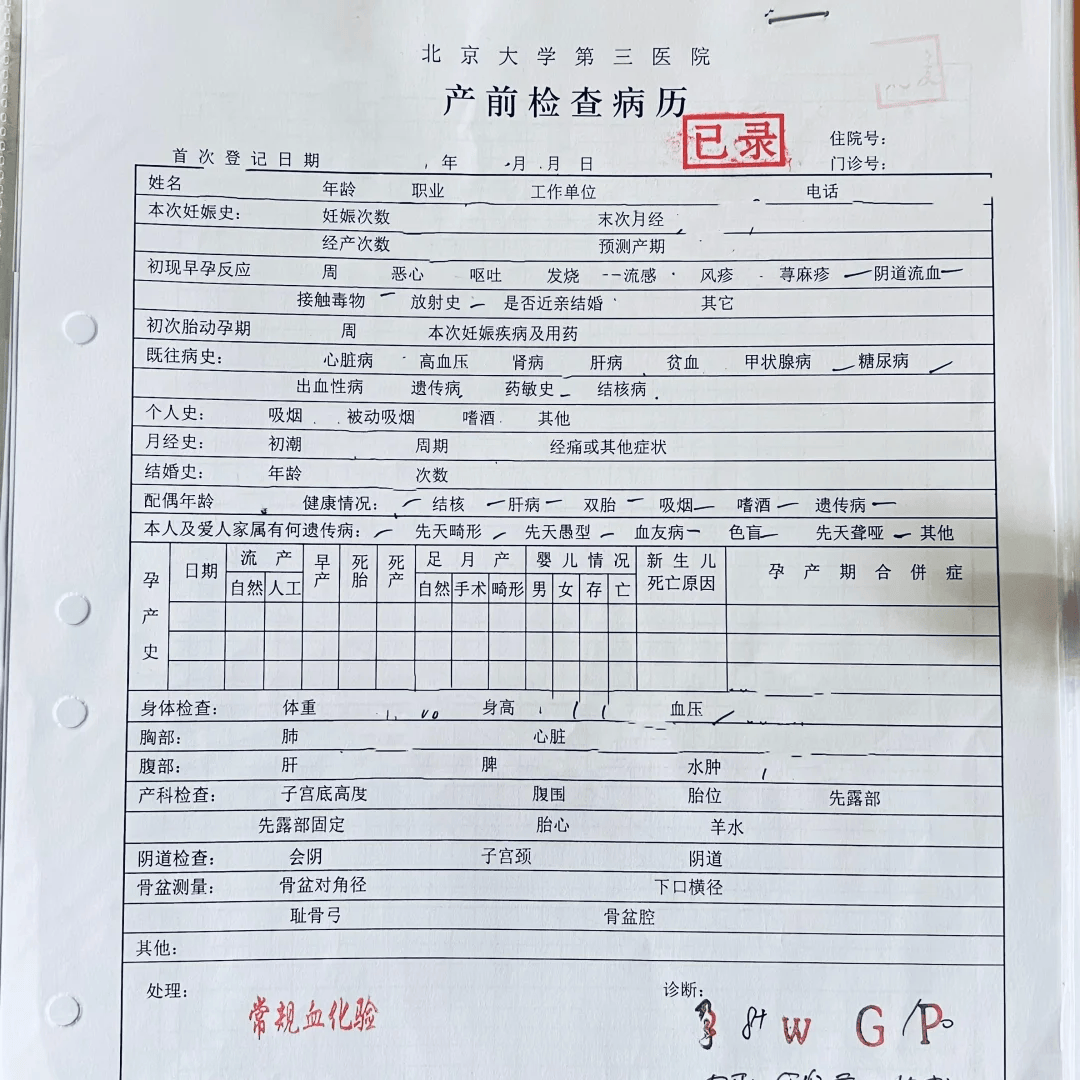 北京大学第三医院
产前检查病历
已录
住院号:
首次登记日期 年 月 月 日 门诊号:
姓名 年龄 职业 工作单位 电话
本次妊娠史: 妊娠次数 末次月经
经产次数 预测产期
初现早孕反应 周 恶心 呕吐 发烧 流感 风疹 荨麻疹 阴道流血
接触毒物 放射史 是否近亲结婚 其它
初次胎动孕期 周 本次妊娠疾病及用药
既往病史: 心脏病 高血压 肾病 肝病 贫血 甲状腺病 糖尿病
出血性病 遗传病 药敏史 结核病
个人史: 吸烟 被动吸烟 嗜酒 其他
月经史: 初潮 周期 经痛或其他症状
结婚史: 年龄 次数
配偶年龄 健康情况: 结核 肝病 双胎 吸烟 嗜酒 遗传病
本人及爱人家属有何遗传病: 先天畸形 先天愚型 血友病 色盲 先天聋哑 其他
孕产史 日期 流产 早产 死胎 死产 足月产 婴儿情况 新生儿死亡原因 孕产期合併症
自然 人工 自然 手术 畸形 男 女 存 亡
身体检查: 体重 身高 血压
胸部: 肺 心脏
腹部: 肝 脾 水肿
产科检查: 子宫底高度 腹围 胎位 先露部
先露部固定 胎心 羊水
阴道检查: 会阴 子宫颈 阴道
骨盆测量: 骨盆对角径 下口横径
耻骨弓 骨盆腔
其他:
处理: 诊断:
常规血化验 孕 8+ W G 1 P 0